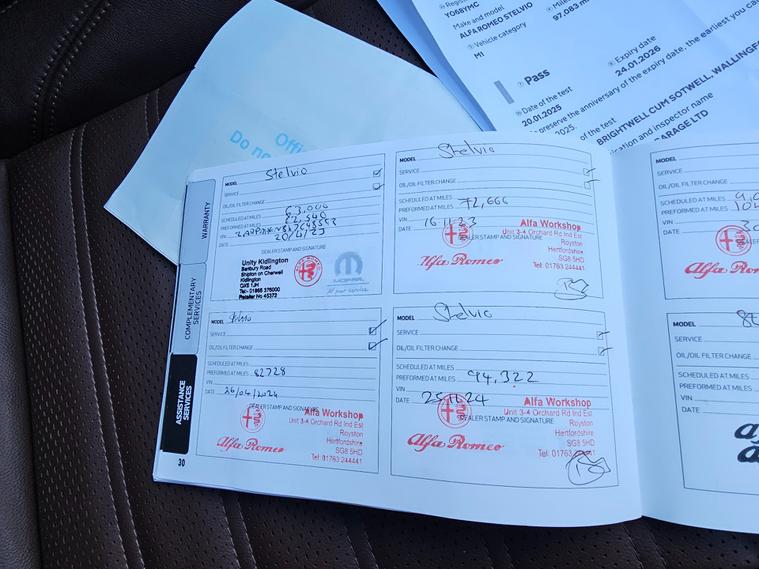 Y068YMC
Make and model
ALFA ROMEO STELVIO
97,083 mi
Vehicle category
M1
Pass
Expiry date
24.01.2026
Date of the test
20.01.2025
preserve the anniversary of the expiry date, the earliest you ca
2025.
of the test
BRIGHTWELL CUM SOTWELL, WALLINGF
ication and inspector name
GARAGE LTD
Offi
Do no
WARRANTY
COMPLEMENTARY SERVICES
ASSISTANCE SERVICES
30
MODEL Stelvio
SERVICE
OIL/OIL FILTER CHANGE
SCHEDULED AT MILES 63,000
PREFORMED AT MILES
VIN
DATE 20/4/23
DEALER STAMP AND SIGNATURE
Unity Kidlington
Banbury Road
Shipton on Cherwell
Kidlington
OX5 1JH
Tel:- 01865 376000
Retailer No 45372
MOPAR
MODEL Stelvio
SERVICE
OIL/OIL FILTER CHANGE
SCHEDULED AT MILES
PREFORMED AT MILES 72,666
VIN
DATE 16 11 23
DEALER STAMP AND SIGNATURE
Alfa Workshop
Unit 3-4 Orchard Rd Ind Est
Royston
Hertfordshire
SG8 5HD
Tel: 01763 244441
Alfa Romeo
MODEL Stelvio
SERVICE
OIL/OIL FILTER CHANGE
SCHEDULED AT MILES
PREFORMED AT MILES 82728
VIN
DATE 26/04/2024
DEALER STAMP AND SIGNATURE
Alfa Workshop
Unit 3-4 Orchard Rd Ind Est
Royston
Hertfordshire
SG8 5HD
Tel: 01763 244441
Alfa Romeo
MODEL Stelvio
SERVICE
OIL/OIL FILTER CHANGE
SCHEDULED AT MILES
PREFORMED AT MILES 94,322
VIN
DATE 25 11 24
DEALER STAMP AND SIGNATURE
Alfa Workshop
Unit 3-4 Orchard Rd Ind Est
Royston
Hertfordshire
SG8 5HD
Tel: 01763 244441
Alfa Romeo
MODEL
SERVICE
OIL/OIL FILTER CHANGE
SCHEDULED AT MILES
PREFORMED AT MILES
VIN
DATE
Alfa Romeo
MODEL
SERVICE
OIL/OIL FILTER
SCHEDULED AT MILES
PREFORMED AT MILES
VIN
DATE